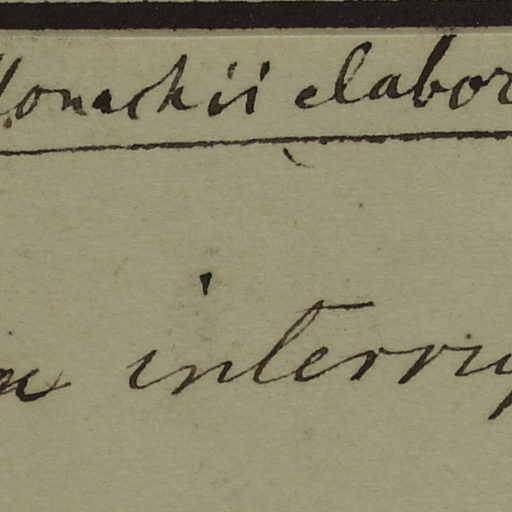 Monachii elabor
a interrup